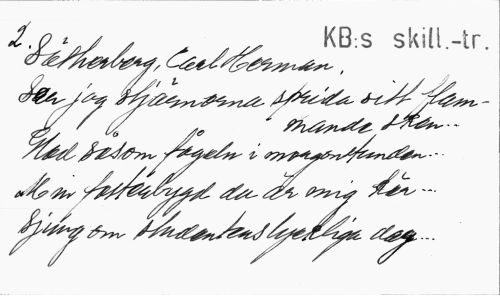 2.
KB:s skill.-tr.
Sätherberg, Carl Herman.
Ser jag stjärnorna sprida sitt flam-
mande sken...
Glad såsom fågeln i morgonstunden...
Min fosterbygd du är mig kär...
Sjung om studentens lyckliga dag...